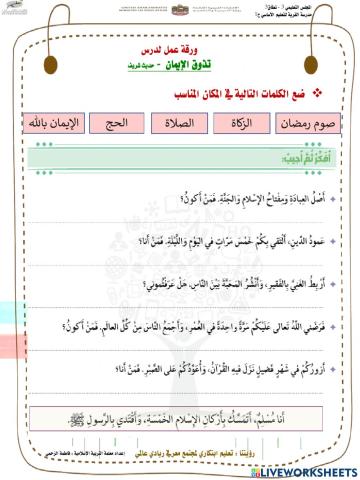 المجلس التعليمي 3 - نطاق 7
مدرسة القرية للتعليم الأساسي ح1
ورقة عمل لدرس
تذوق الإيمان - حديث شريف
ضع الكلمات التالية في المكان المناسب
صوم رمضان
الزكاة
الصلاة
الحج
الإيمان بالله
أُفَكِّرُ ثُمَّ أُجِيبُ:
أَصْلُ العِبادَةِ وَمِفْتاحُ الإِسْلامِ وَالجَنَّةِ. فَمَنْ أَكُونُ؟
عَمودُ الدّينِ، أَلْتَقي بِكُمْ خَمْسَ مَرّاتٍ في اليَوْمِ وَاللَّيْلَةِ. فَمَنْ أَنا؟
أَرْبِطُ الغَنِيَّ بِالفَقيرِ، وَأَنْشُرُ المَحَبَّةَ بَيْنَ النّاسِ، هَلْ عَرَفْتُموني؟
فَرَضَني اللهُ تَعالى عَلَيْكُمْ مَرَّةً واحِدَةً في العُمْرِ، وَأَجْمَعُ النّاسَ مِنْ كُلِّ العالَمِ. فَمَنْ أَكونُ؟
أَزورُكُمْ في شَهْرٍ فَضيلٍ نَزَلَ فيهِ القُرْآنُ، وَأُعَوِّدُكُمْ عَلى الصَّبْرِ. فَمَنْ أَنا؟
أَنا مُسْلِمٌ، أَتَمَسَّكُ بِأَرْكانِ الإِسْلامِ الخَمْسَةِ، وَأَقْتَدي بِالرَّسولِ ﷺ.
رؤيتنا : تعليم ابتكاري لمجتمع معرفي ريادي عالمي
إعداد معلمة التربية الإسلامية : فاطمة الزحمي
LIVEWORKSHEETS